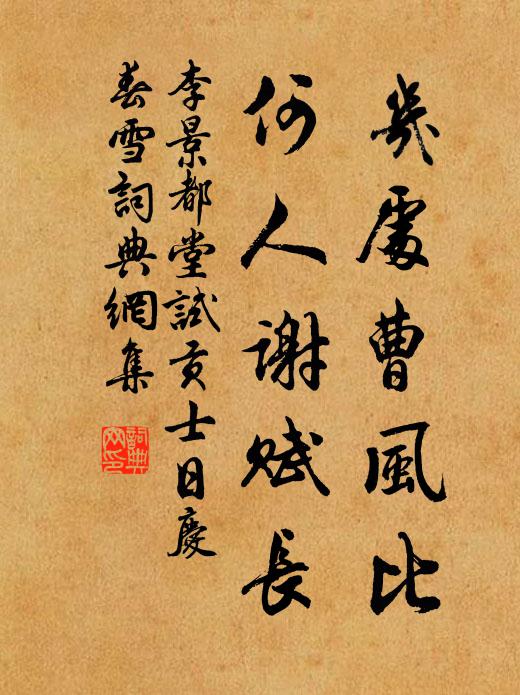 幾處曹風比
何人謝賦長
李景都堂試貢士日慶
春雪詞典網集
詞典
网印